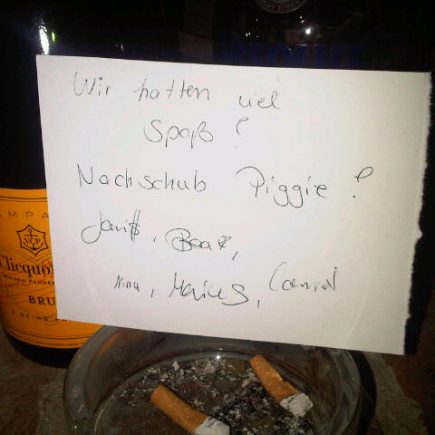 Wir hatten viel
Spaß!
Nachschub Piggie?
Jani$,
Nina, Marius, Conrad
CHAMPA
VCP
Clicquot
BRU